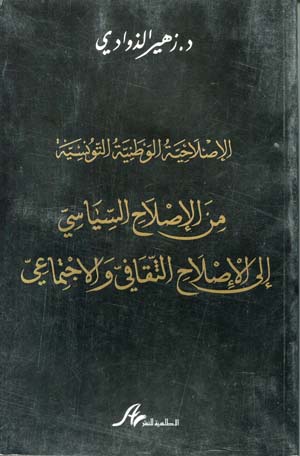 د. زهير الذوادي
الإِصْلَاحِيَّة الوَطَنِيَّة التُّونِسِيَّة
مِنَ الإِصْلَاحِ السِّيَاسِيّ
إلى الإِصْلَاحِ الثَّقَافِيّ وَالاجْتِمَاعِيّ
الأطلسية للنشر